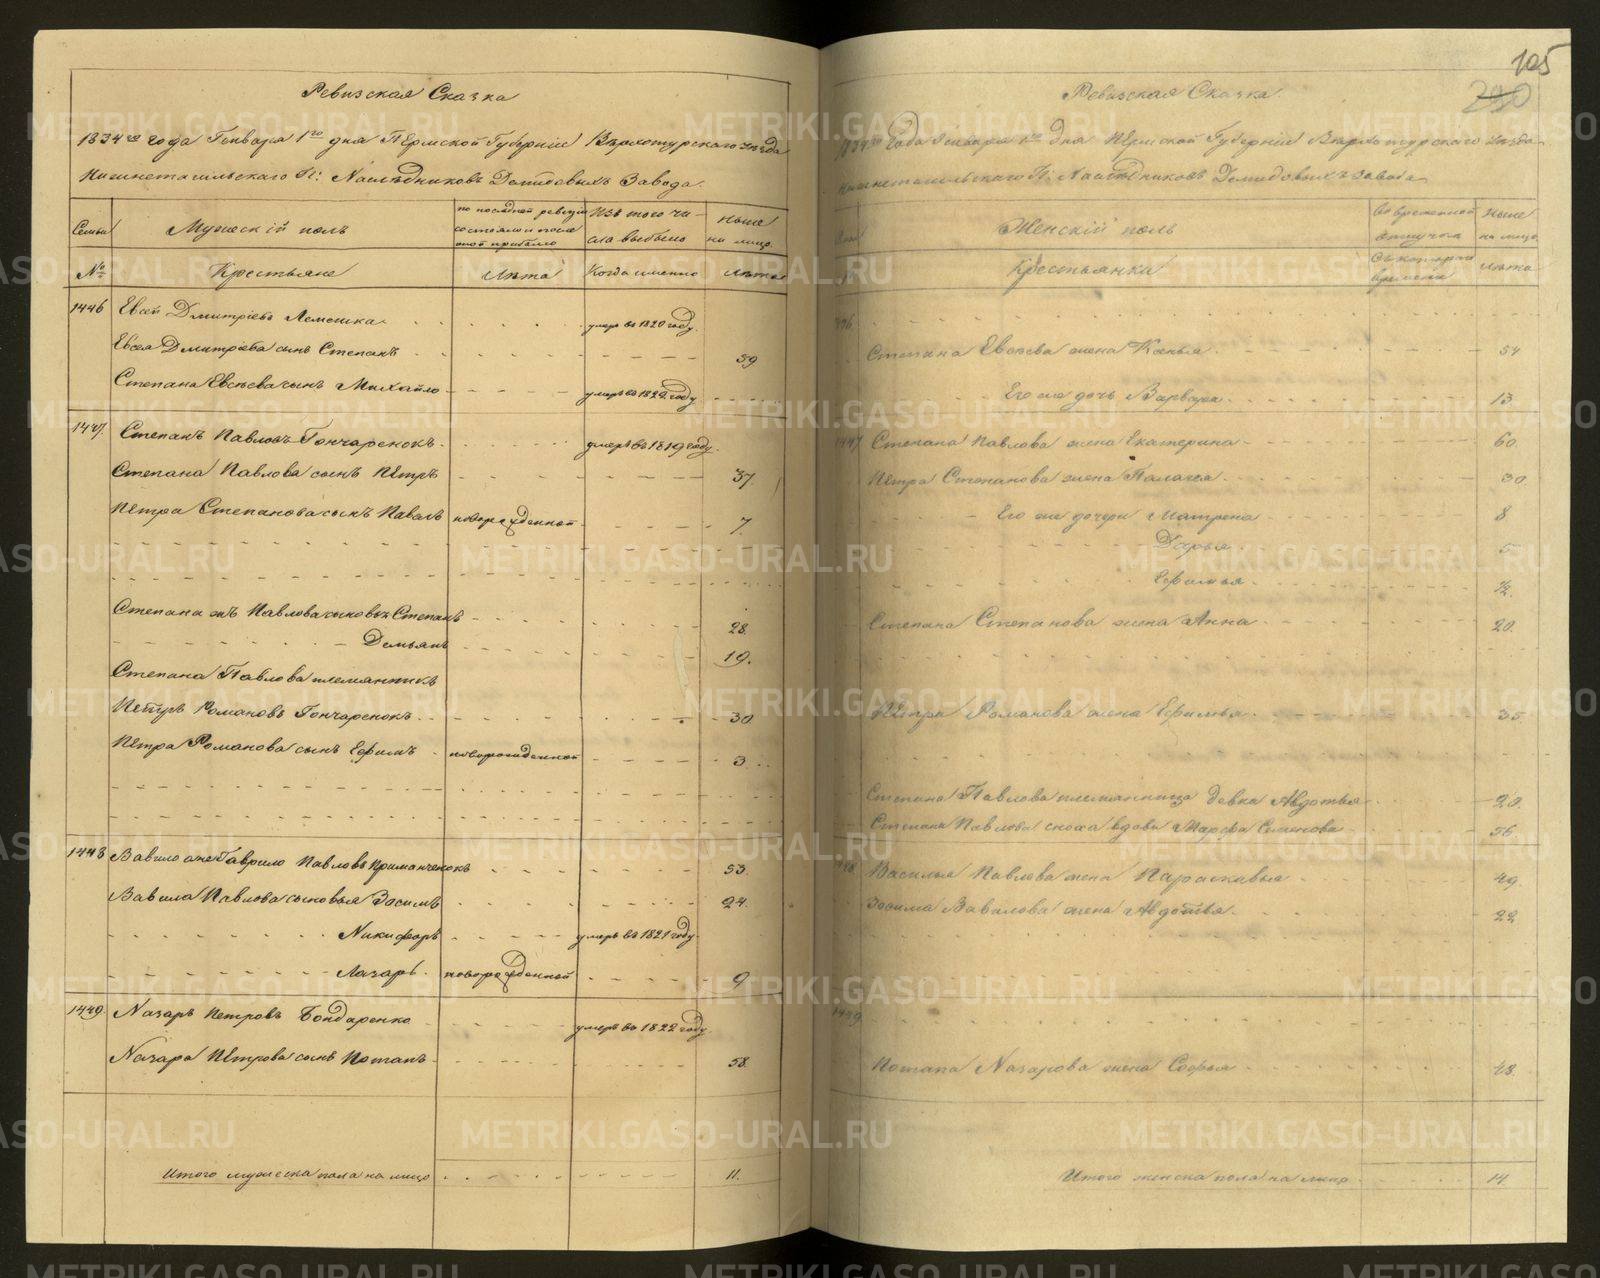 Ревизская Сказка
1834го года Генваря 1го дня Пермской Губернiи Верхотурскаго уезда
Нижнетагильскаго Г: Наследниковъ Демидовыхъ Завода.
Семьи Мужескiй полъ по последней ревизiи состояло и после оной прибыло Изъ того числа выбыло Ныне на лицо
№ Крестьяне Лета Когда именно Лета
1446 Евсей Дмитрiевъ Лемешка умеръ въ 1820 году.
Евсея Дмитрiева сынъ Степанъ 59
Степана Евсеева сынъ Михайло умеръ въ 1822 году
1447 Степанъ Павловъ Гончаренокъ умеръ въ 1819 году.
Степана Павлова сынъ Петръ 37.
Петра Степанова сынъ Павелъ новорожденной 7.
Степана жъ Павлова сыновья Степанъ 28.
Демьянъ 19.
Степана Павлова племянникъ
Петръ Романовъ Гончаренокъ 30
Петра Романова сынъ Ефимъ новорожденной 3
1448 Вавило онже Гаврило Павловъ Приманченокъ 53.
Вавила Павлова сыновья Зосимъ 24.
Никифоръ умеръ въ 1821 году
Лазарь новорожденной 9
1449 Назаръ Петровъ Бондаренко умеръ въ 1822 году.
Назара Петрова сынъ Потапъ 58.
Итого мужеска пола на лицо 11.
105
230
Ревизская Сказка.
1834го Года Генваря 1го Дня Пермской Губернiи Верхотурскаго уезда
Нижнетагильскаго Г: Наследниковъ Демидовыхъ завода
Женскiй полъ Во временной отлучке Ныне на лицо
Крестьянки Съ котораго времени Лета
Степана Евсеева жена Ксенья 54
Его же дочь Варвара 13.
1447 Степана Павлова жена Екатерина 60.
Петра Степанова жена Палагея 30
Его же дочери Матрена 8
Дарья 5
Ефимья ½.
Степана Степанова жена Анна 20.
Петра Романова жена Ефимья 35
Степана Павлова племянница девка Авдотья 20.
Степана Павлова сноха вдова Марфа Семенова 56.
Василья Павлова жена Параскавья 49.
Зосима Вавилова жена Авдотья 22
1449
Потапа Назарова жена Софья 48.
Итого женска пола на лицо 14.
METRIKI.GASO-URAL.RU